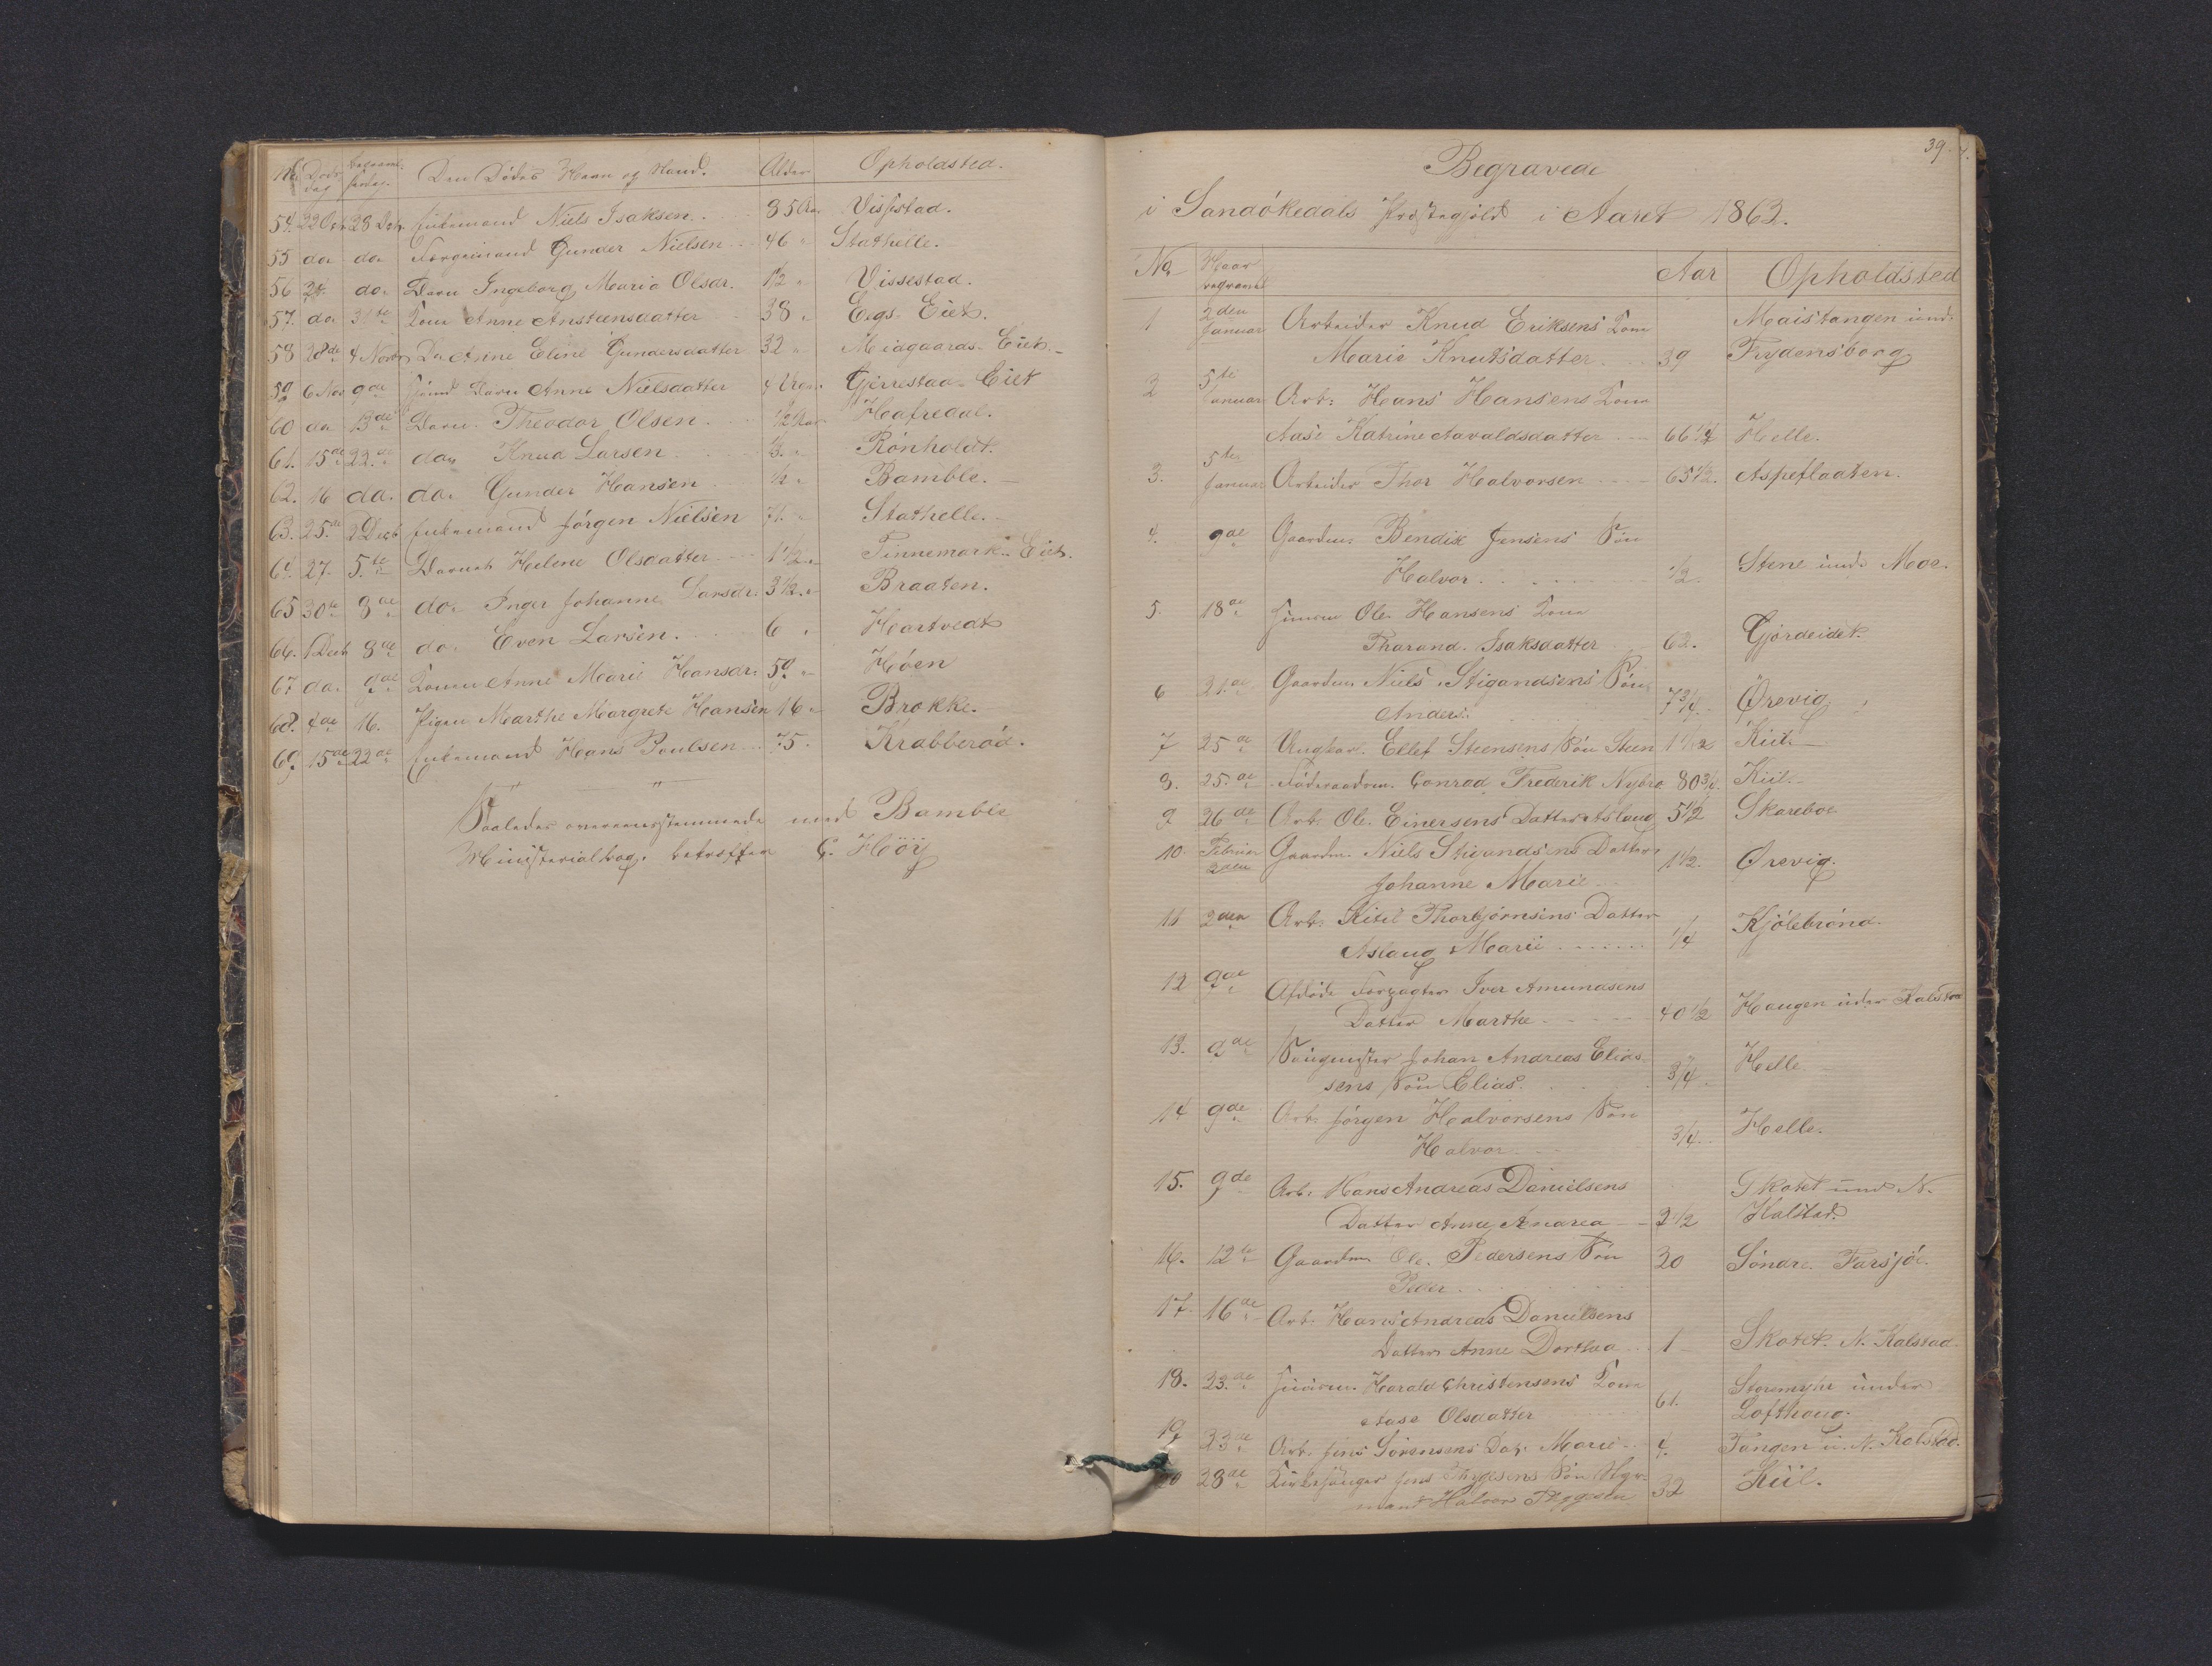 No Døds dag begravel. sesdag. Den Dødes Navn og Stand. Alder Opholdsted.
54. 22 Octr 28 Octr Enkemand Niels Isaksen. 85 Aar Vissestad.
55 do do Gunder Nielsen 46 " Stathelle.
56 24. do. Barn Ingeborg Maria Olsdr. 1½ " Vissestad.
57. do 31te Kone Anne Anstensdatter 38 " Eegs-Eiet.
58 28de 4 Novbr Do Anne Eline Gundersdatter 32 " Miagaards-Eiet.
59 6 Nov 9de Barn Anne Nielsdatter 4 Uger Gjerrestad-Eiet
60 do 13de Barn. Theodor Olsen. ½ Aar Hafredal.
61. 15de 22de do, Knud Larsen Rönholdt.
62. 16 do. do. Gunder Hansen ½ " Bamble.
63. 25.de 2 Decb Enkemand Jörgen Nielsen 71. " Stathelle.
64. 27. 5.te Barnet Helene Olsdatter 1½ " Tinnemark-Eiet.
65 30te 8de do. Inger Johanne Larsdr. 3½. " Braaten.
66. 1 Decb 8de do. Even Larsen. 6 " Hartvedt
67. do. 9de Konen Anne Marie Hansdr. 59 " Höen
68. 4de 16. Pigen Marthe Margrete Hansen 16 " Brokke.
69. 15de 22de Enkemand Hans Poulsen 75. Krabberød.
Saaledes overeensstemmende med Bamble
Ministerialbog. bekræfter C. Höÿ
39.
Begravede
i Sandökedals Præstegjeld i Aaret 1863.
No Naar begravet Aar Opholdsted
1 2den Januar Arbeider Knud Eriksens Kone Maistangen und.
Marie Knutsdatter 39 Frydensborg
2 5te Januar Arb: Hans Hansens Kone
Aase Katrine Aavaldsdatter 66¼ Helle.
3. 5te Januar Arbeider Thor Halvorsen 65½. Aspeflaaten.
4. 9de Gaardm. Bendix Jensens Sön
Halvor ½. Stene under Moe.
5. 18de Ole Hansens Kone
Tharand. Isaksdatter 62. Gjördeidet.
6 21.de Gaardm. Niels Stigandsens Sön
Anders. 7¾. Ørevig
7 25de Ungkar. Ellef Steensens Sön Steen 1 1/12 Kiil.
8. 25.de Föderaadsm. Conrad Frederik Nybro 80¾. Kiil.
9 26de Arb. Ole. Einersens Datter Aslaug 5½ Skareboe
10. Februar 2den Gaardm. Niels Stigandsens Datter
Johanne Marie 1½. Ørevig.
11 2den Arb. Kitel Thorbjörnsens Datter
Aslaug Marie ¼ Kjölebrönd.
12 9de Afdöde Forpagter Iver Amundsens
Datter Marthe 40½ Haugen under Kalstad
13. 9de Johan Andreas Elias-
sens Sön Elias. ¾. Helle.
14 9de Arb. Jörgen Halvorsens Sön
Halvor ¾. Helle.
15. 9de Arb. Hans Andreas Danielsens Skotet und N.
Datter Anne Andrea 2½ Kalstad.
16. 12te Gaardm. Ole. Pedersens Sön 20 Söndre. Farsjöe.
Peder
17. 16de Arb. Hans Andreas Danielsens
Datter Anne Dorthea 1 Skotet. N. Kalstad.
18. 23.de Harald Christensens Kone Storemyhr under
Aase Olsdatter 61. Lofthaug.
19 23de Arb. Jens Sörensens Dat. Marie 4. Tangen u. N. Kalstad.
20 28de Kirkesanger Jens Thygesens Sön Styr-
mand Halvor Thygesen 32 Kiil.